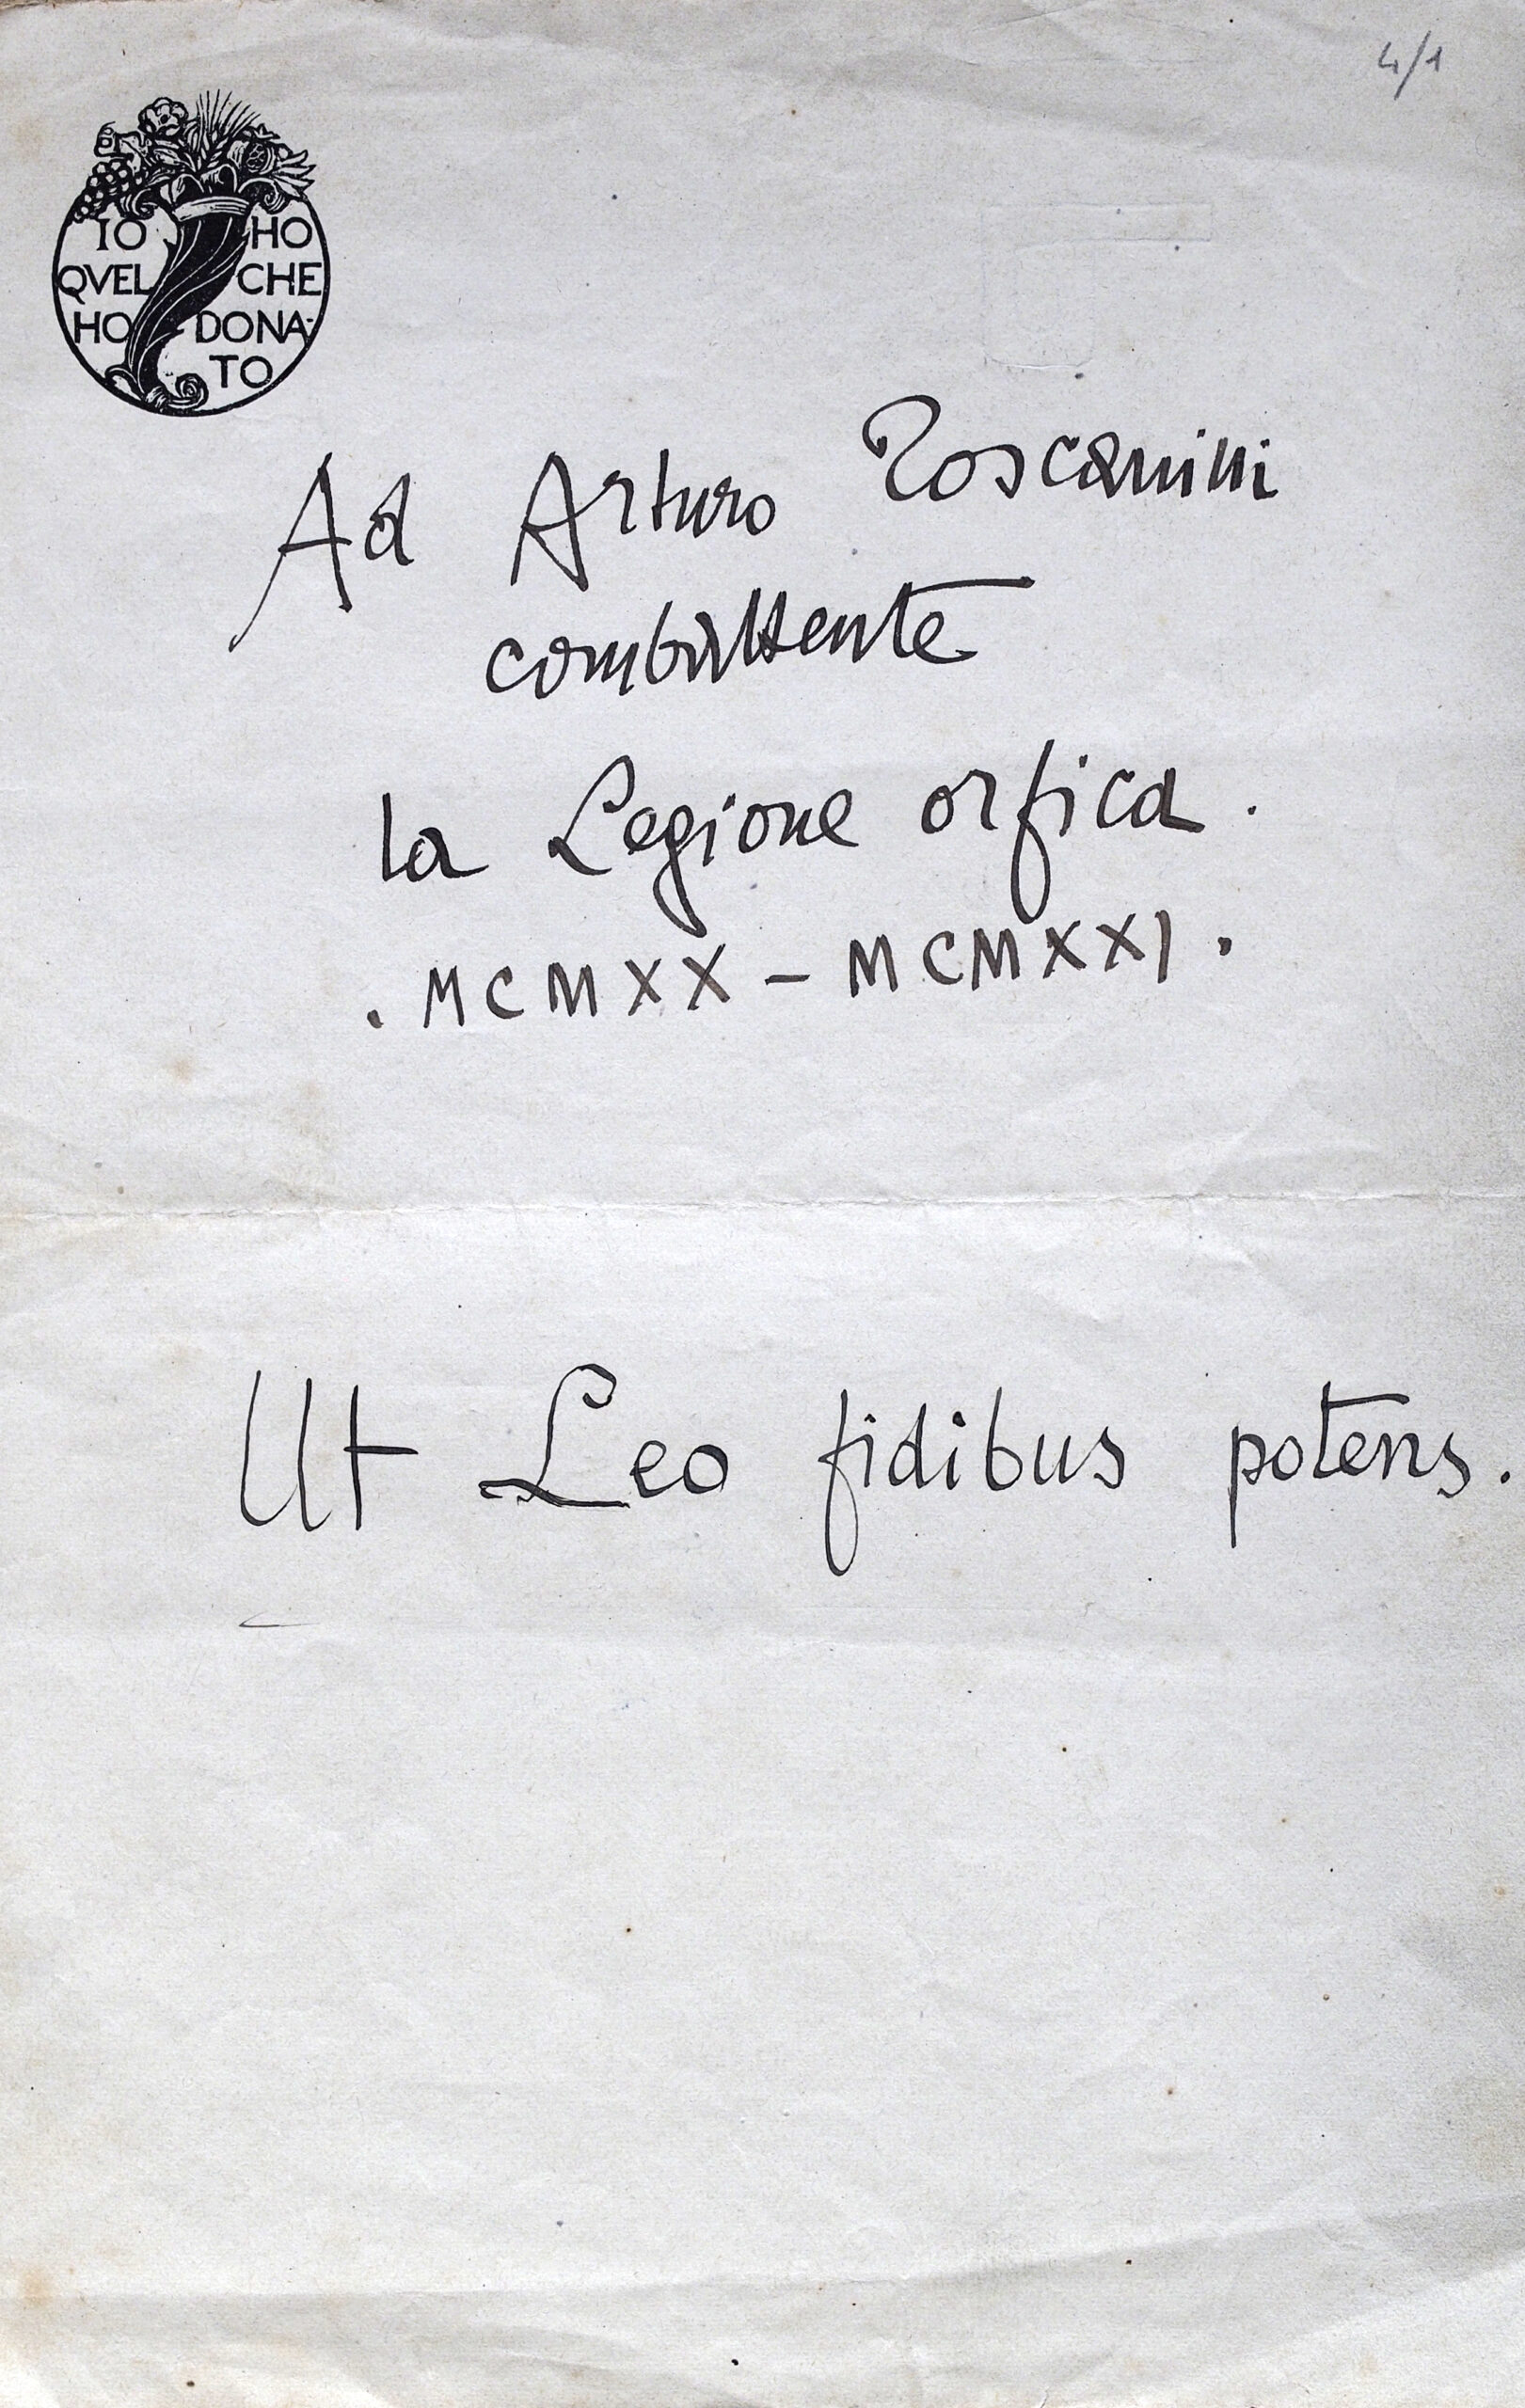 4/1
IO HO
QVEL CHE
HO DONA-
TO
Ad Arturo Toscanini
combattente
la Legione orfica.
. MCMXX – MCMXXI .
Ut Leo fidibus potens.